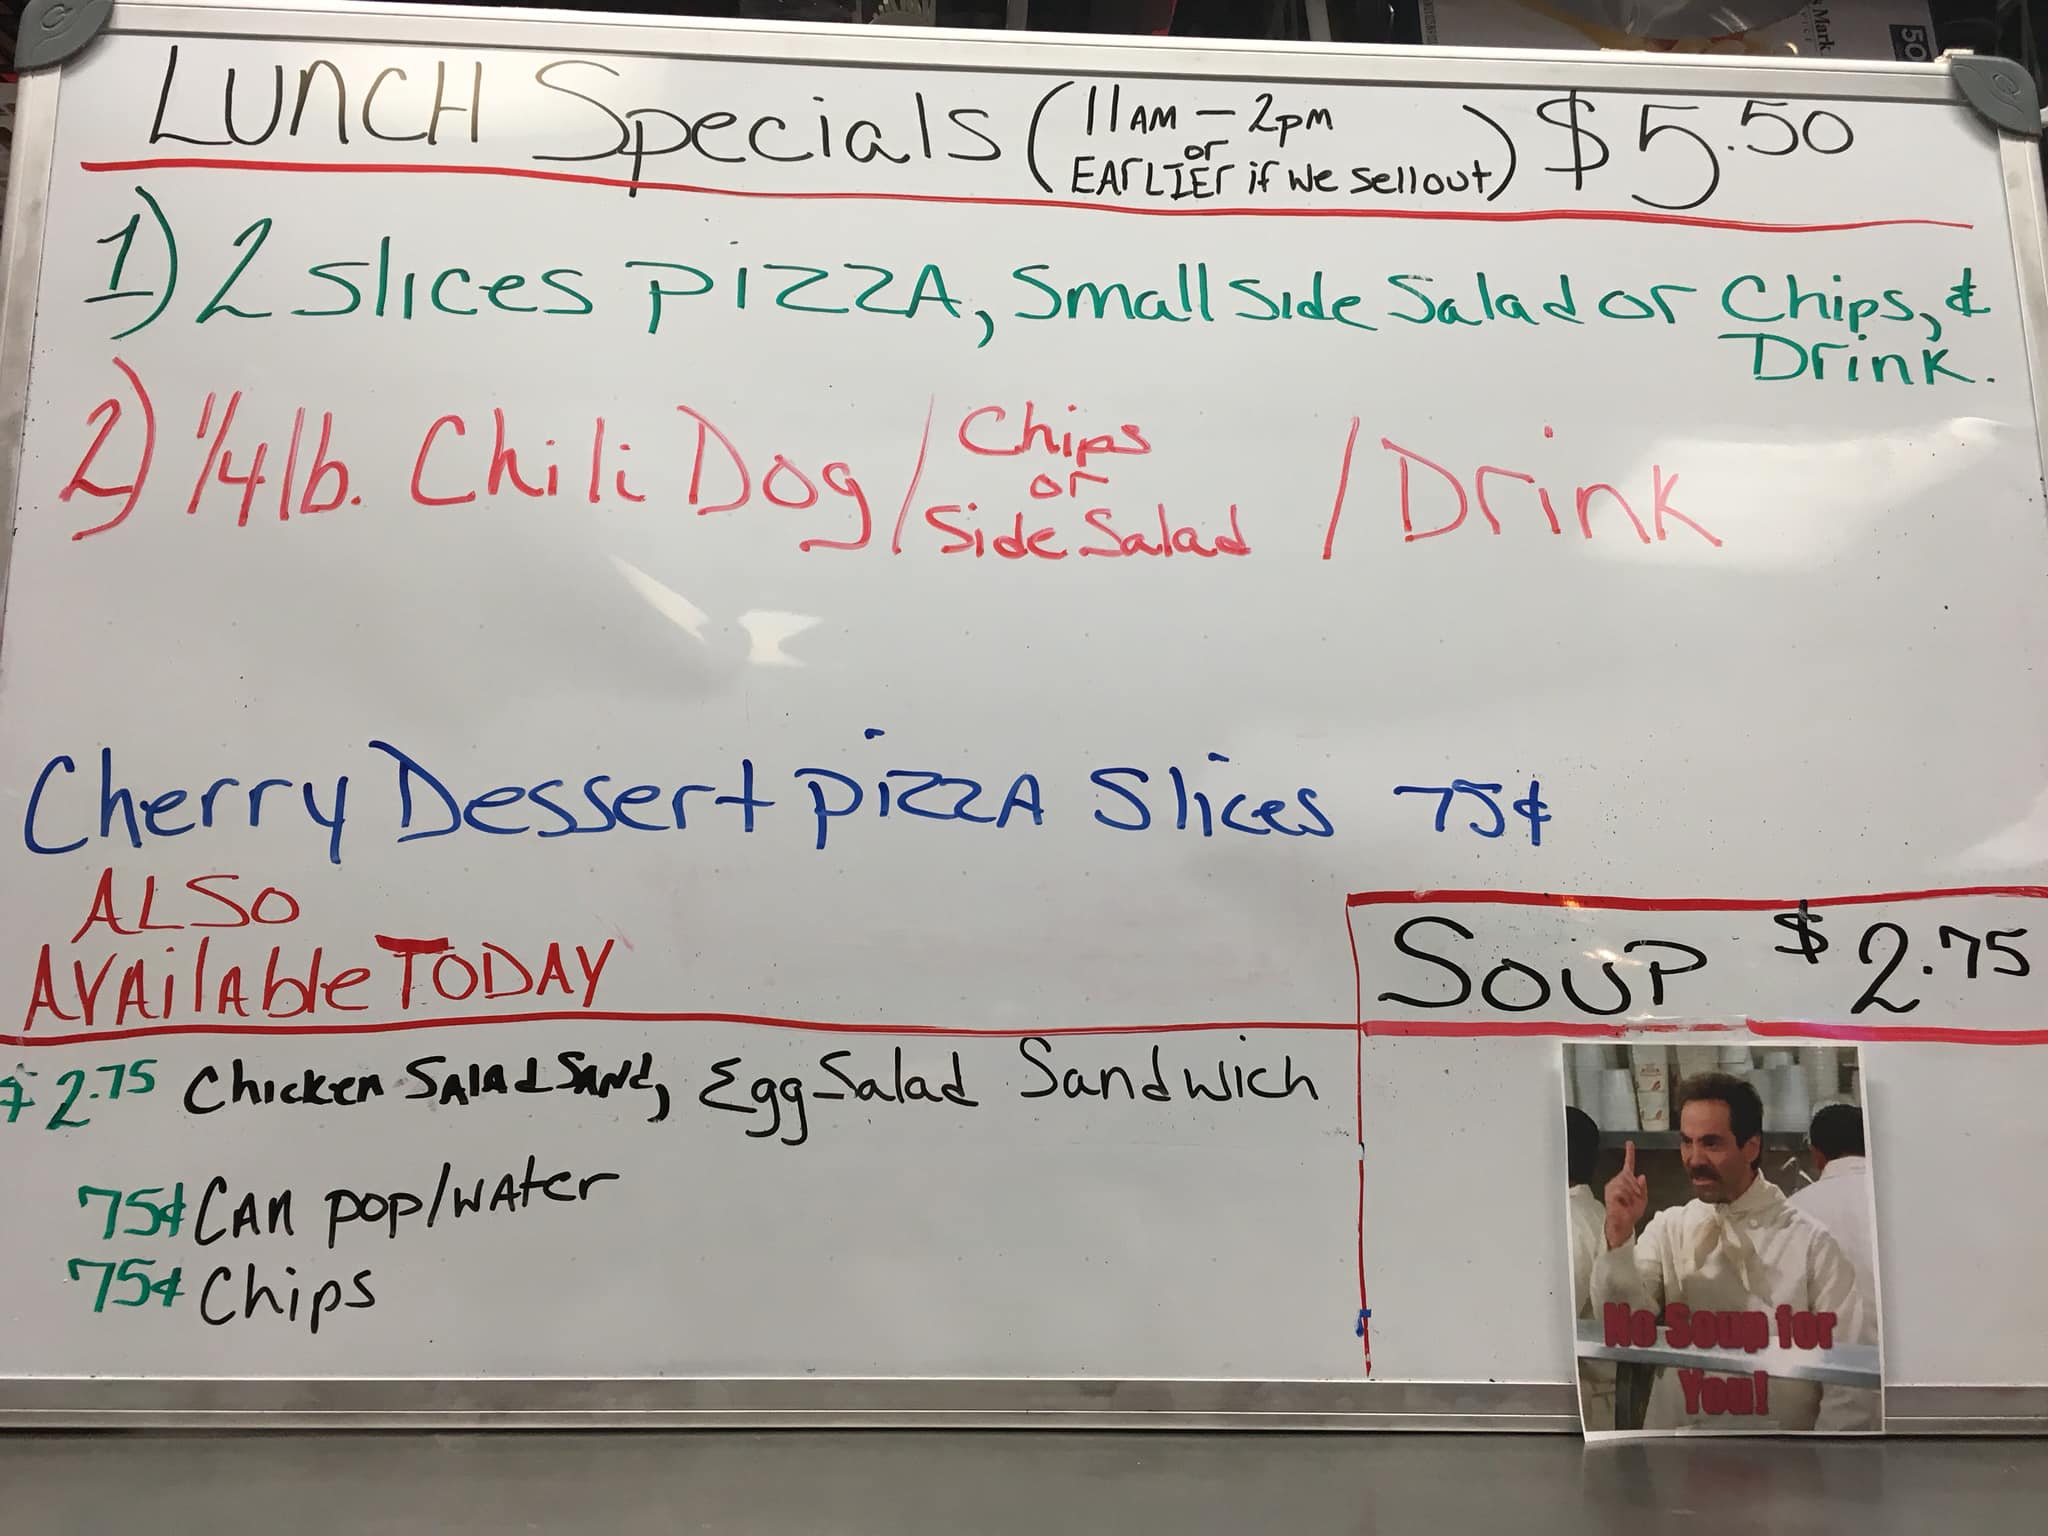 s Mark
50
LUNCH Specials (11AM - 2pm or EARLIER if we sellout) $5.50
1) 2 slices pizzA, Small Side Salad or Chips, &
Drink.
2) 1/4 lb. Chili Dog / Chips or Side Salad / Drink
Cherry Dessert pizzA Slices 75¢
ALSO
AVAilAble TODAY
SOUP $2.75
$2.75 Chicken SALAd SANd, Egg Salad Sandwich
75¢ CAN pop/wAter
75¢ Chips
No Soup for
You!